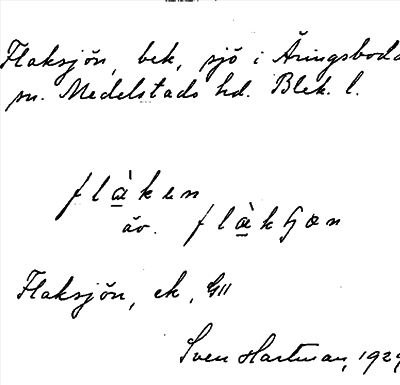 Flaksjön, bek, sjö i Äringsboda
sn. Medelstads hd. Blek. l.
flàken
äv. flàkɧøn
Flaksjön, ek, GII
Sven Hartman, 1929